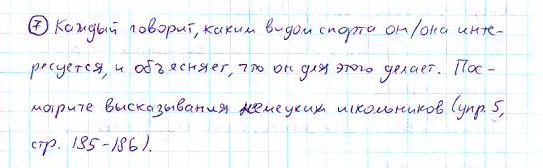 ⑦ Каждый говорит, каким видом спорта он/она инте-
ресуется, и объясняет, что он для этого делает. Пос-
мотрите высказывания немецких школьников (упр. 5,
стр. 185-186).